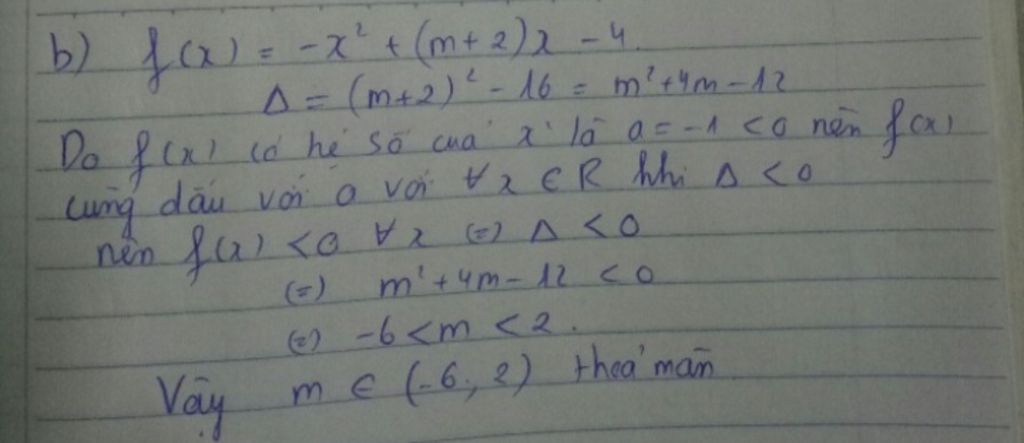 b) f(x) = -x² + (m+2)x - 4.
Δ = (m+2)² - 16 = m²+4m-12
Do f(x) có hệ số của x² là a = -1 < 0 nên f(x)
cùng dấu với a với ∀x ∈ R khi Δ < 0
nên f(x) < 0 ∀x (=) Δ < 0
(=) m²+4m-12 < 0
(=) -6 < m < 2.
Vậy m ∈ (-6; 2) thoả mãn